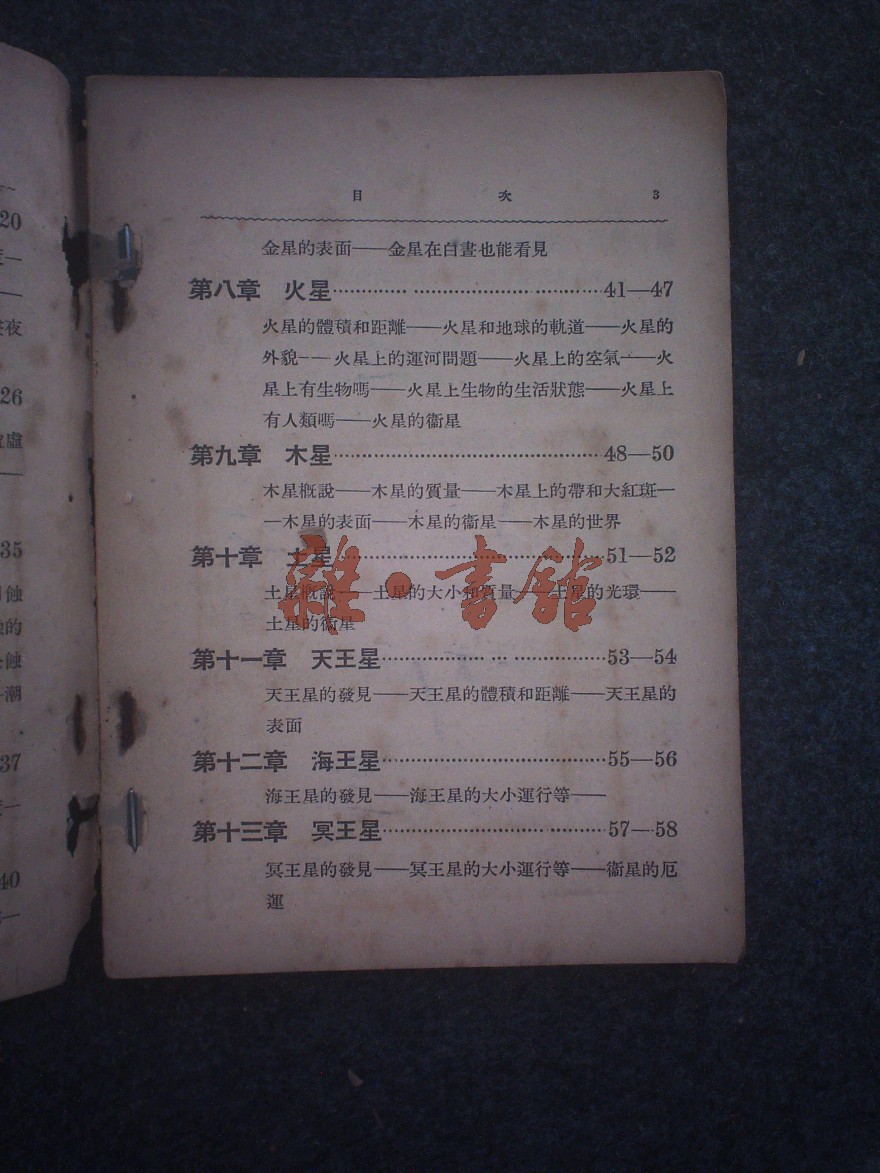 目 次 3
金星的表面——金星在白晝也能看見
第八章 火星………… ………………… …………41—47
火星的體積和距離——火星和地球的軌道——火星的
外貌——火星上的運河問題——火星上的空氣——火
星上有生物嗎——火星上生物的生活狀態——火星上
有人類嗎——火星的衞星
第九章 木星…………………………………………48—50
木星概說——木星的質量——木星上的帶和大紅斑—
—木星的表面——木星的衞星——木星的世界
第十章 土星…………………………………………51—52
土星概說——土星的大小和質量——土星的光環——
土星的衞星
第十一章 天王星………………… … ……………53—54
天王星的發見——天王星的體積和距離——天王星的
表面
第十二章 海王星……………………………………55—56
海王星的發見——海王星的大小運行等——
第十三章 冥王星………………………… …………57—58
冥王星的發見——冥王星的大小運行等——衞星的厄
運
雜·書館
20
夜
26
虛
35
蝕
的
蝕
潮
37
40